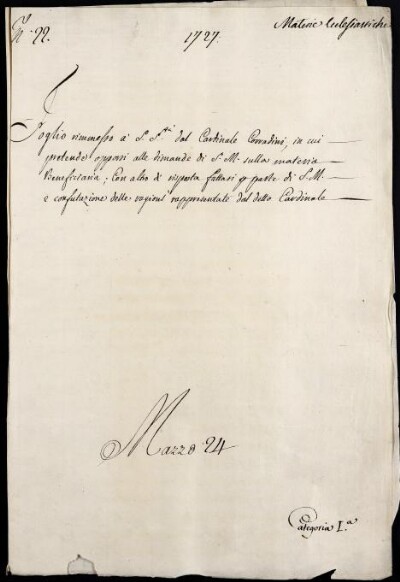 N.° 22.
1727.
Materie Ecclesiastiche
Foglio rimmesso a S. S.tà dal Cardinale Corradini, in cui
pretende opporsi alle dimande di S. M. sulla materia
Beneficiaria; Con altro di risposta fattasi p parte di S. M.
e confutazione delle ragioni rappresentate dal detto Cardinale
Mazzo 24
Categoria I.a